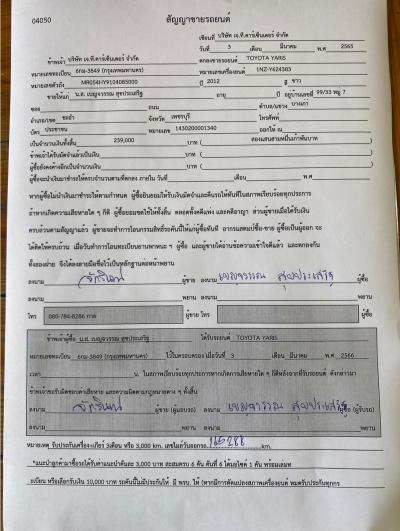 04050
สัญญาขายรถยนต์
เขียนที่ บริษัท เจ.ที.คาร์เซ็นเตอร์ จำกัด
วันที่ 3 เดือน มีนาคม พ.ศ 2565
ข้าพเจ้า บริษัท เจ.ที.คาร์เซ็นเตอร์ จำกัด ตกลงขายรถยนต์ TOYOTA YARIS
หมายเลขทะเบียน 6กษ-3849 (กรุงเทพมหานคร) หมายเลขเครื่องยนต์ 1NZ-Y624383
หมายเลขตัวถัง MR054HY9104085000 ปี 2012 สี ขาว
ขายให้แก่ น.ส. เบญจวรรณ สุขประเสริฐ อายุ ปี อยู่บ้านเลขที่ 99/33 หมู่ 7
ซอย ถนน ตำบล/แขวง บางเก่า
อำเภอ/เขต ชะอำ จังหวัด เพชรบุรี โทรศัพท์
บัตร ประชาชน หมายเลข 1430200001340 ออกให้ ณ
เป็นจำนวนเงินทั้งสิ้น 239,000 บาท ( สองแสนสามหมื่นเก้าพันบาท )
ข้าพเจ้าได้รับมัดจำแล้วเป็นเงิน บาท ( )
ผู้ซื้อยังคงค้างอีกเป็นจำนวนเงิน บาท ( )
ผู้ซื้อจะนำเงินมาชำระให้ครบจำนวนตามที่ตกลง ภายใน วันที่ เดือน พ.ศ
หากผู้ซื้อไม่นำเงินมาชำระให้ตามกำหนด ผู้ซื้อยินยอมให้ริบเงินมัดจำและคืนรถให้ทันทีในสภาพเรียบร้อยทุกประการ
ถ้าหากเกิดความเสียหายใด ๆ ก็ดี ผู้ซื้อยอมชดใช้ให้ทั้งสิ้น ตลอดทั้งคดีแพ่ง และคดีอาญา ส่วนผู้ขายเมื่อได้รับเงิน
ครบถ้วนตามสัญญาแล้ว ผู้ขายจะทำการโอนกรรมสิทธิ์รถคันนี้ให้แก่ผู้ซื้อทันที อากรแสตมป์ซื้อ-ขาย ผู้ซื้อเป็นผู้ออก จะ
ได้ติดให้ครบถ้วน เมื่อวันทำการโอนทะเบียนยานพาหนะ ฯ ผู้ซื้อ และผู้ขายได้อ่านข้อความเข้าใจดีแล้ว และตกลงกัน
ทั้งสองฝ่าย จึงได้ลงลายมือชื่อไว้เป็นหลักฐานต่อหน้าพยาน
ลงนาม ผู้ขาย ลงนาม เบญจวรรณ สุขประเสริฐ ผู้ซื้อ
ลงนาม พยาน ลงนาม พยาน
โทร 080-784-8286 กาล ผู้ขาย โทร ผู้ซื้อ
ข้าพเจ้าผู้ซื้อ น.ส. เบญจวรรณ สุขประเสริฐ ได้รับรถยนต์ TOYOTA YARIS
หมายเลขทะเบียน 6กษ-3849 (กรุงเทพมหานคร) ไว้ในครอบครอง เมื่อวันที่ 3 เดือน มีนาคม พ.ศ. 2566
เวลา น. ในสภาพเรียบร้อยทุกประการหากเกิดการเสียหายใด ๆ ก็ดีหลังจากที่รับรถยนต์ ดังกล่าวมา
ข้าพเจ้าขอรับผิดชอบค่าเสียหาย และความผิดตามกฎหมายต่าง ๆ ทั้งสิ้น
ลงนาม ผู้ขาย (ผู้มอบรถ) ลงนาม เบญจวรรณ สุขประเสริฐ ผู้ซื้อ (ผู้รับรถ)
ลงนาม พยาน ลงนาม พยาน
หมายเหตุ รับประกันเครื่อง+เกียร์ 3เดือน หรือ 3,000 km. เลขไมล์วันออกรถ 165288 km.
*แนะนำลูกค้ามาซื้อรถได้รับค่าแนะนำคันละ 3,000 บาท สะสมครบ 6 คัน คันที่ 6 ได้มอไซค์ 1 คัน พร้อมเลขท
ะเบียน หรือเลือกรับเงิน 10,000 บาท รถคันนี้ไม่มีประกันให้ มี พรบ. ให้ (หากมีการดัดแปลงสภาพเครื่องยนต์ หมดรับประกันทุกกร